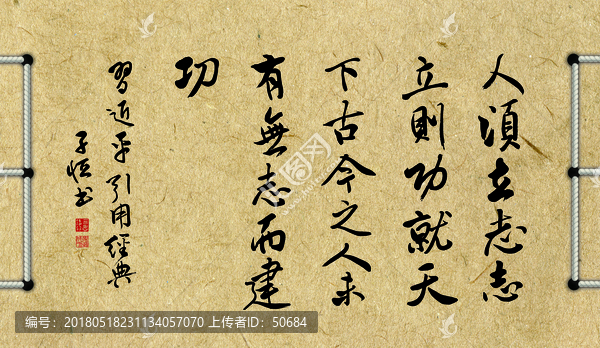 人須立志志
立則功就天
下古今之人未
有無志而建
功
習近平引用經典
子恒书
编号：20180518231134057070 上传者ID：50684